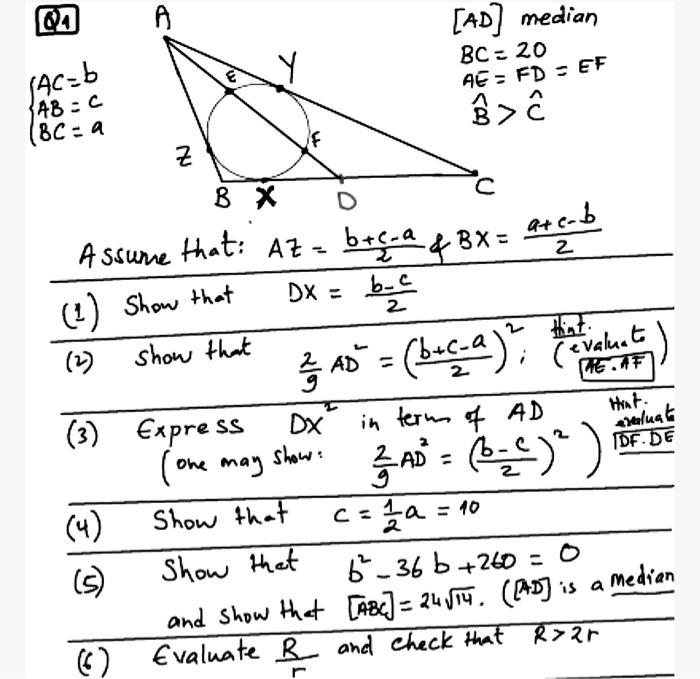 Q1
A
[AD] median
BC = 20
AE = FD = EF
B̂ > Ĉ
{AC = b
AB = c
BC = a
E
Y
Z
F
B X D C
Assume that: AZ = (b+c-a)/2 & BX = (a+c-b)/2
(1) Show that DX = (b-c)/2
(2) show that 2/9 AD² = ((b+c-a)/2)² ; Hint. (evaluate AE.AF)
(3) Express DX² in term of AD
(one may show: 2/9 AD² = ((b-c)/2)²) Hint. evaluate DF.DE
(4) Show that c = 1/2 a = 10
(5) Show that b² - 36 b + 260 = 0
and show that [ABC] = 24√14. ([AD] is a median
(6) Evaluate R/r and check that R > 2r